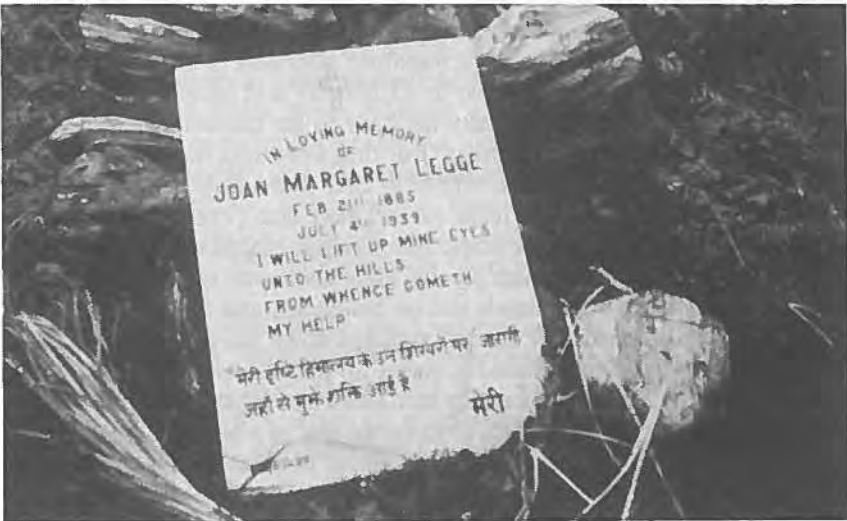 IN LOVING MEMORY
OF
JOAN MARGARET LEGGE
FEB 21ST 1885
JULY 4TH 1939
I WILL LIFT UP MINE EYES
UNTO THE HILLS
FROM WHENCE COMETH
MY HELP
"मेरी दृष्टि हिमालय के उन शिखरों पर जाएगी
जहाँ से मुझे शक्ति आई है"
मेरी